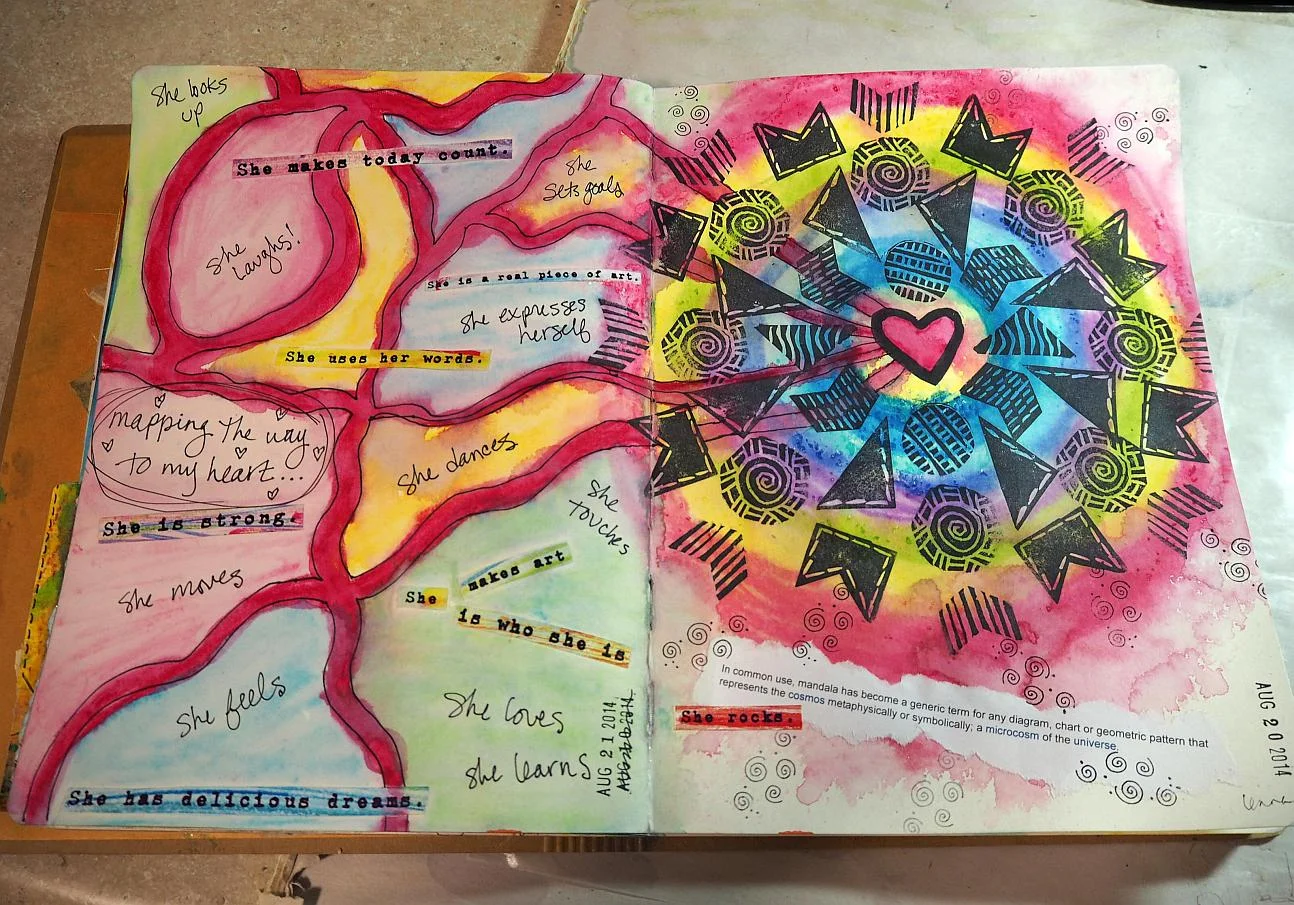 She looks
up
She makes today count.
she
sets goals
she
laughs!
She is a real piece of art.
she expresses
herself
She uses her words.
mapping the way
to my heart...
she dances
She is strong.
she
touches
she moves
makes art
She
is who she is
she feels
She loves
she learns
She has delicious dreams.
AUG 21 2014
In common use, mandala has become a generic term for any diagram, chart or geometric pattern that
represents the cosmos metaphysically or symbolically; a microcosm of the universe.
She rocks.
AUG 20 2014